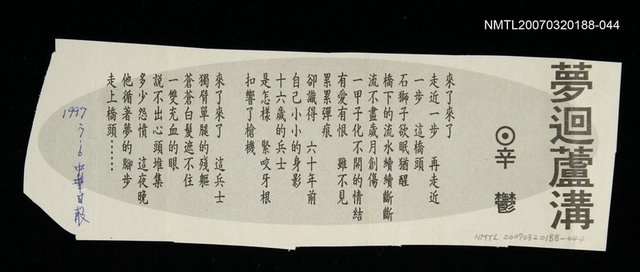 NMTL20070320188-044
夢迴蘆溝
⊙辛鬱
來了來了
走近一步　再走近
一步　這橋頭
石獅子欲眠猶醒
橋下的流水續續斷斷
流不盡歲月創傷
一甲子化不開的情結
有愛有恨　雖不見
累累彈痕
卻識得　六十年前
自己小小的身影
十六歲的兵士
是怎樣　緊咬牙根
扣響了槍機
來了來了　這兵士
獨臂單腿的殘軀
蒼蒼白髮遮不住
一雙充血的眼
說不出心頭堆集
多少怨憤　這夜晚
他循著夢的腳步
走上橋頭……
1997
中華日報
NMTL 20070320188-044